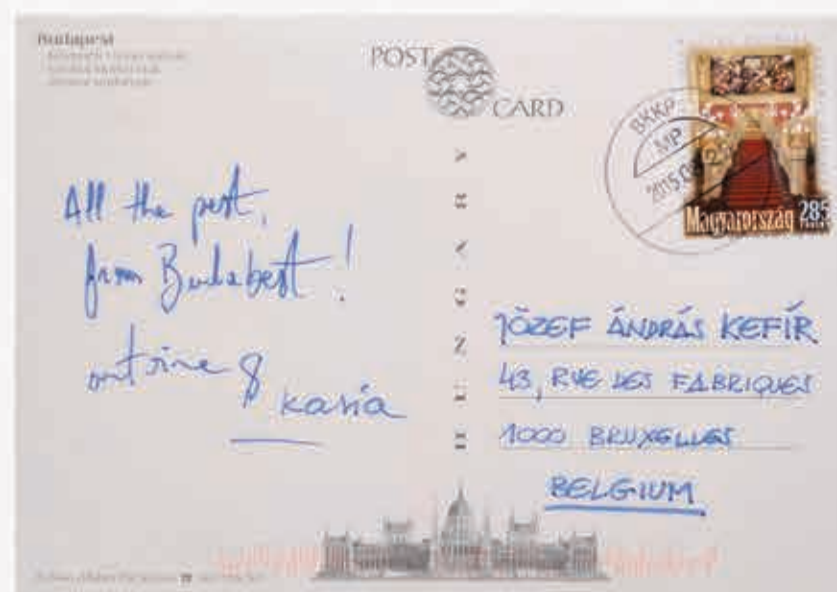 Budapest
POST CARD
BKKP
MP
2015.0
Magyarország 285
HUNGARY
All the pest,
from Budabest!
antoine &
kasia
JÓZEF ÁNDRÁS KEFÍR
43, RUE DES FABRIQUES
1000 BRUXELLES
BELGIUM